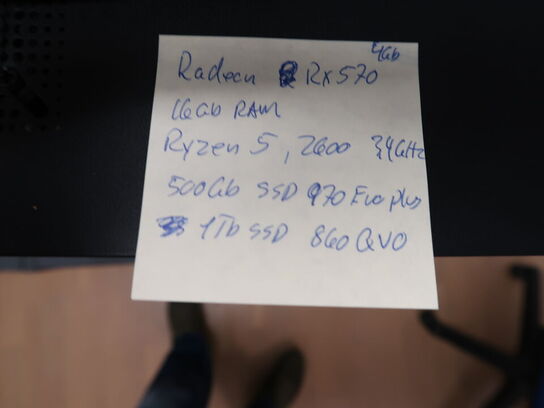 4Gb
Radeon RX570
16Gb RAM
Ryzen 5, 2600 3,4GHz
500Gb SSD 970 Evo plus
1Tb SSD 860 QVO